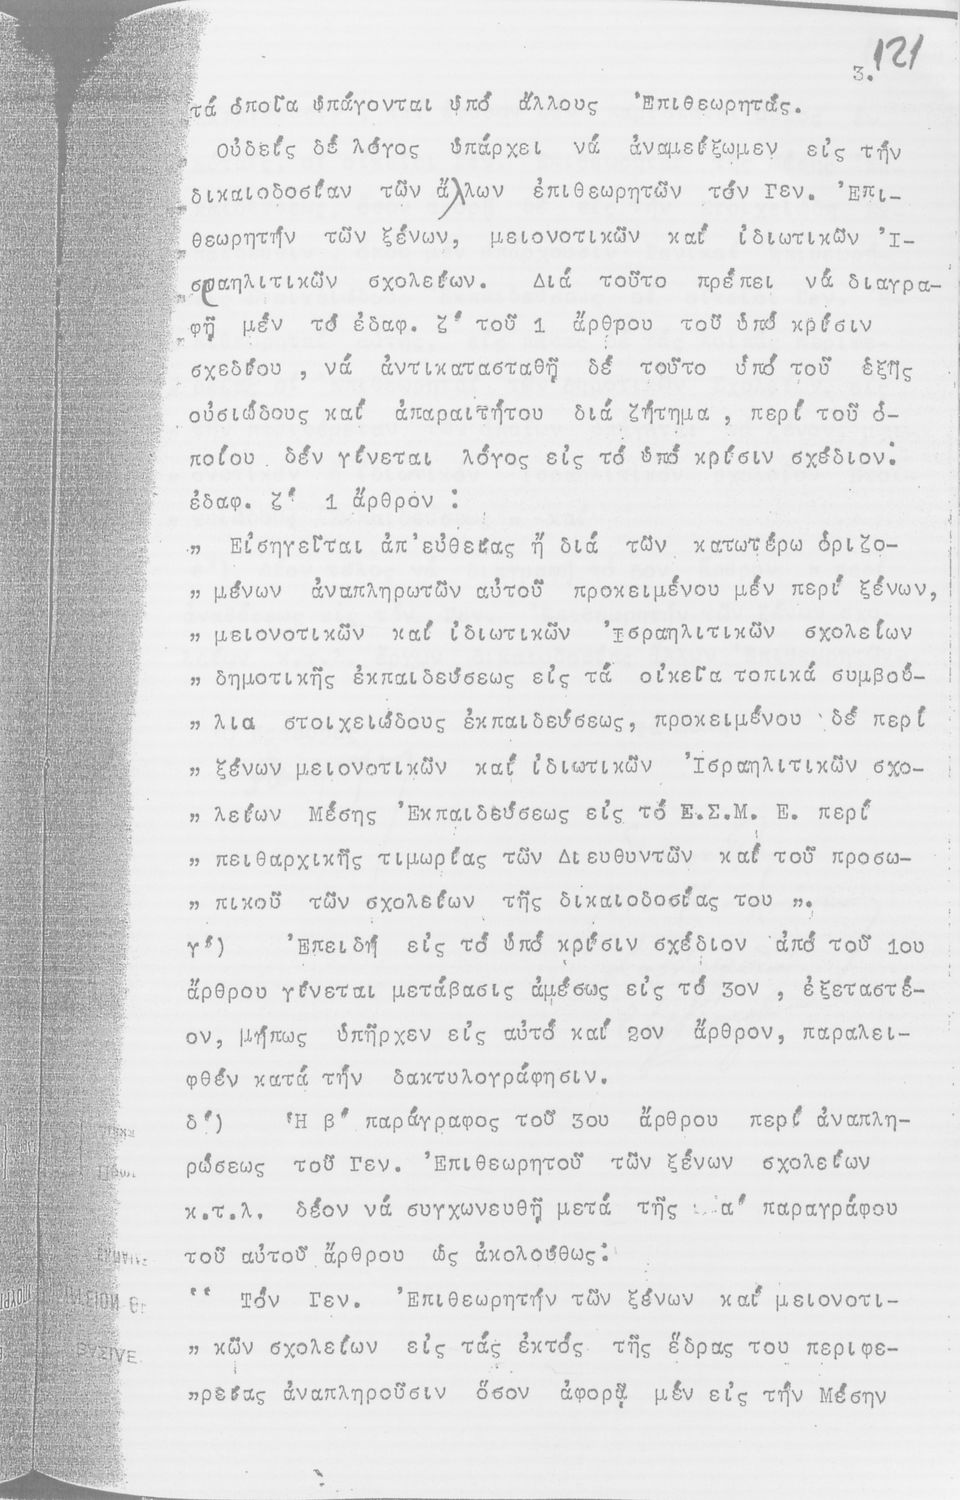 121
3.
τά ὁποῖα ὑπάγονται ὑπό ἄλλους Ἐπιθεωρητάς.
Οὐδείς δέ λόγος ὑπάρχει νά ἀναμείξωμεν εἰς τήν
δικαιοδοσίαν τῶν ἄλλων ἐπιθεωρητῶν τόν Γεν. Ἐπι-
θεωρητήν τῶν ξένων, μειονοτικῶν καί ἰδιωτικῶν Ἰ-
σραηλιτικῶν σχολείων. Διά τοῦτο πρέπει νά διαγρα-
φῇ μέν τό ἐδαφ. ζ΄ τοῦ 1 ἄρθρου τοῦ ὑπό κρίσιν
σχεδίου , νά ἀντικατασταθῇ δέ τοῦτο ὑπό τοῦ ἑξῆς
οὐσιώδους καί ἀπαραιτήτου διά ζήτημα , περί τοῦ ὁ-
ποίου δέν γίνεται λόγος εἰς τό ὑπό κρίσιν σχέδιον:
ἐδαφ. ζ΄ 1 ἄρθρον :
" Εἰσηγεῖται ἀπ'εὐθείας ἤ διά τῶν κατωτέρω ὁριζο-
" μένων ἀναπληρωτῶν αὐτοῦ προκειμένου μέν περί ξένων,
" μειονοτικῶν καί ἰδιωτικῶν Ἰσραηλιτικῶν σχολείων
" δημοτικῆς ἐκπαιδεύσεως εἰς τά οἰκεῖα τοπικά συμβού-
" λια στοιχειώδους ἐκπαιδεύσεως, προκειμένου δέ περί
" ξένων μειονοτικῶν καί ἰδιωτικῶν Ἰσραηλιτικῶν σχο-
" λείων Μέσης Ἐκπαιδεύσεως εἰς τό Ε.Σ.Μ. Ε. περί
" πειθαρχικῆς τιμωρίας τῶν Διευθυντῶν καί τοῦ προσω-
" πικοῦ τῶν σχολείων τῆς δικαιοδοσίας του ".
γ΄) Ἐπειδή εἰς τό ὑπό κρίσιν σχέδιον ἀπό τοῦ 1ου
ἄρθρου γίνεται μετάβασις ἀμέσως εἰς τό 3ον , ἐξεταστέ-
ον, μήπως ὑπῆρχεν εἰς αὐτό καί 2ον ἄρθρον, παραλει-
φθέν κατά τήν δακτυλογράφησιν.
δ΄) Ἡ β΄ παράγραφος τοῦ 3ου ἄρθρου περί ἀναπλη-
ρώσεως τοῦ Γεν. Ἐπιθεωρητοῦ τῶν ξένων σχολείων
κ.τ.λ. δέον νά συγχωνευθῇ μετά τῆς α΄ παραγράφου
τοῦ αὐτοῦ ἄρθρου ὡς ἀκολούθως:
" Τόν Γεν. Ἐπιθεωρητήν τῶν ξένων καί μειονοτι-
" κῶν σχολείων εἰς τάς ἐκτός τῆς ἕδρας του περιφε-
"ρείας ἀναπληροῦσιν ὅσον ἀφορᾷ μέν εἰς τήν Μέσην